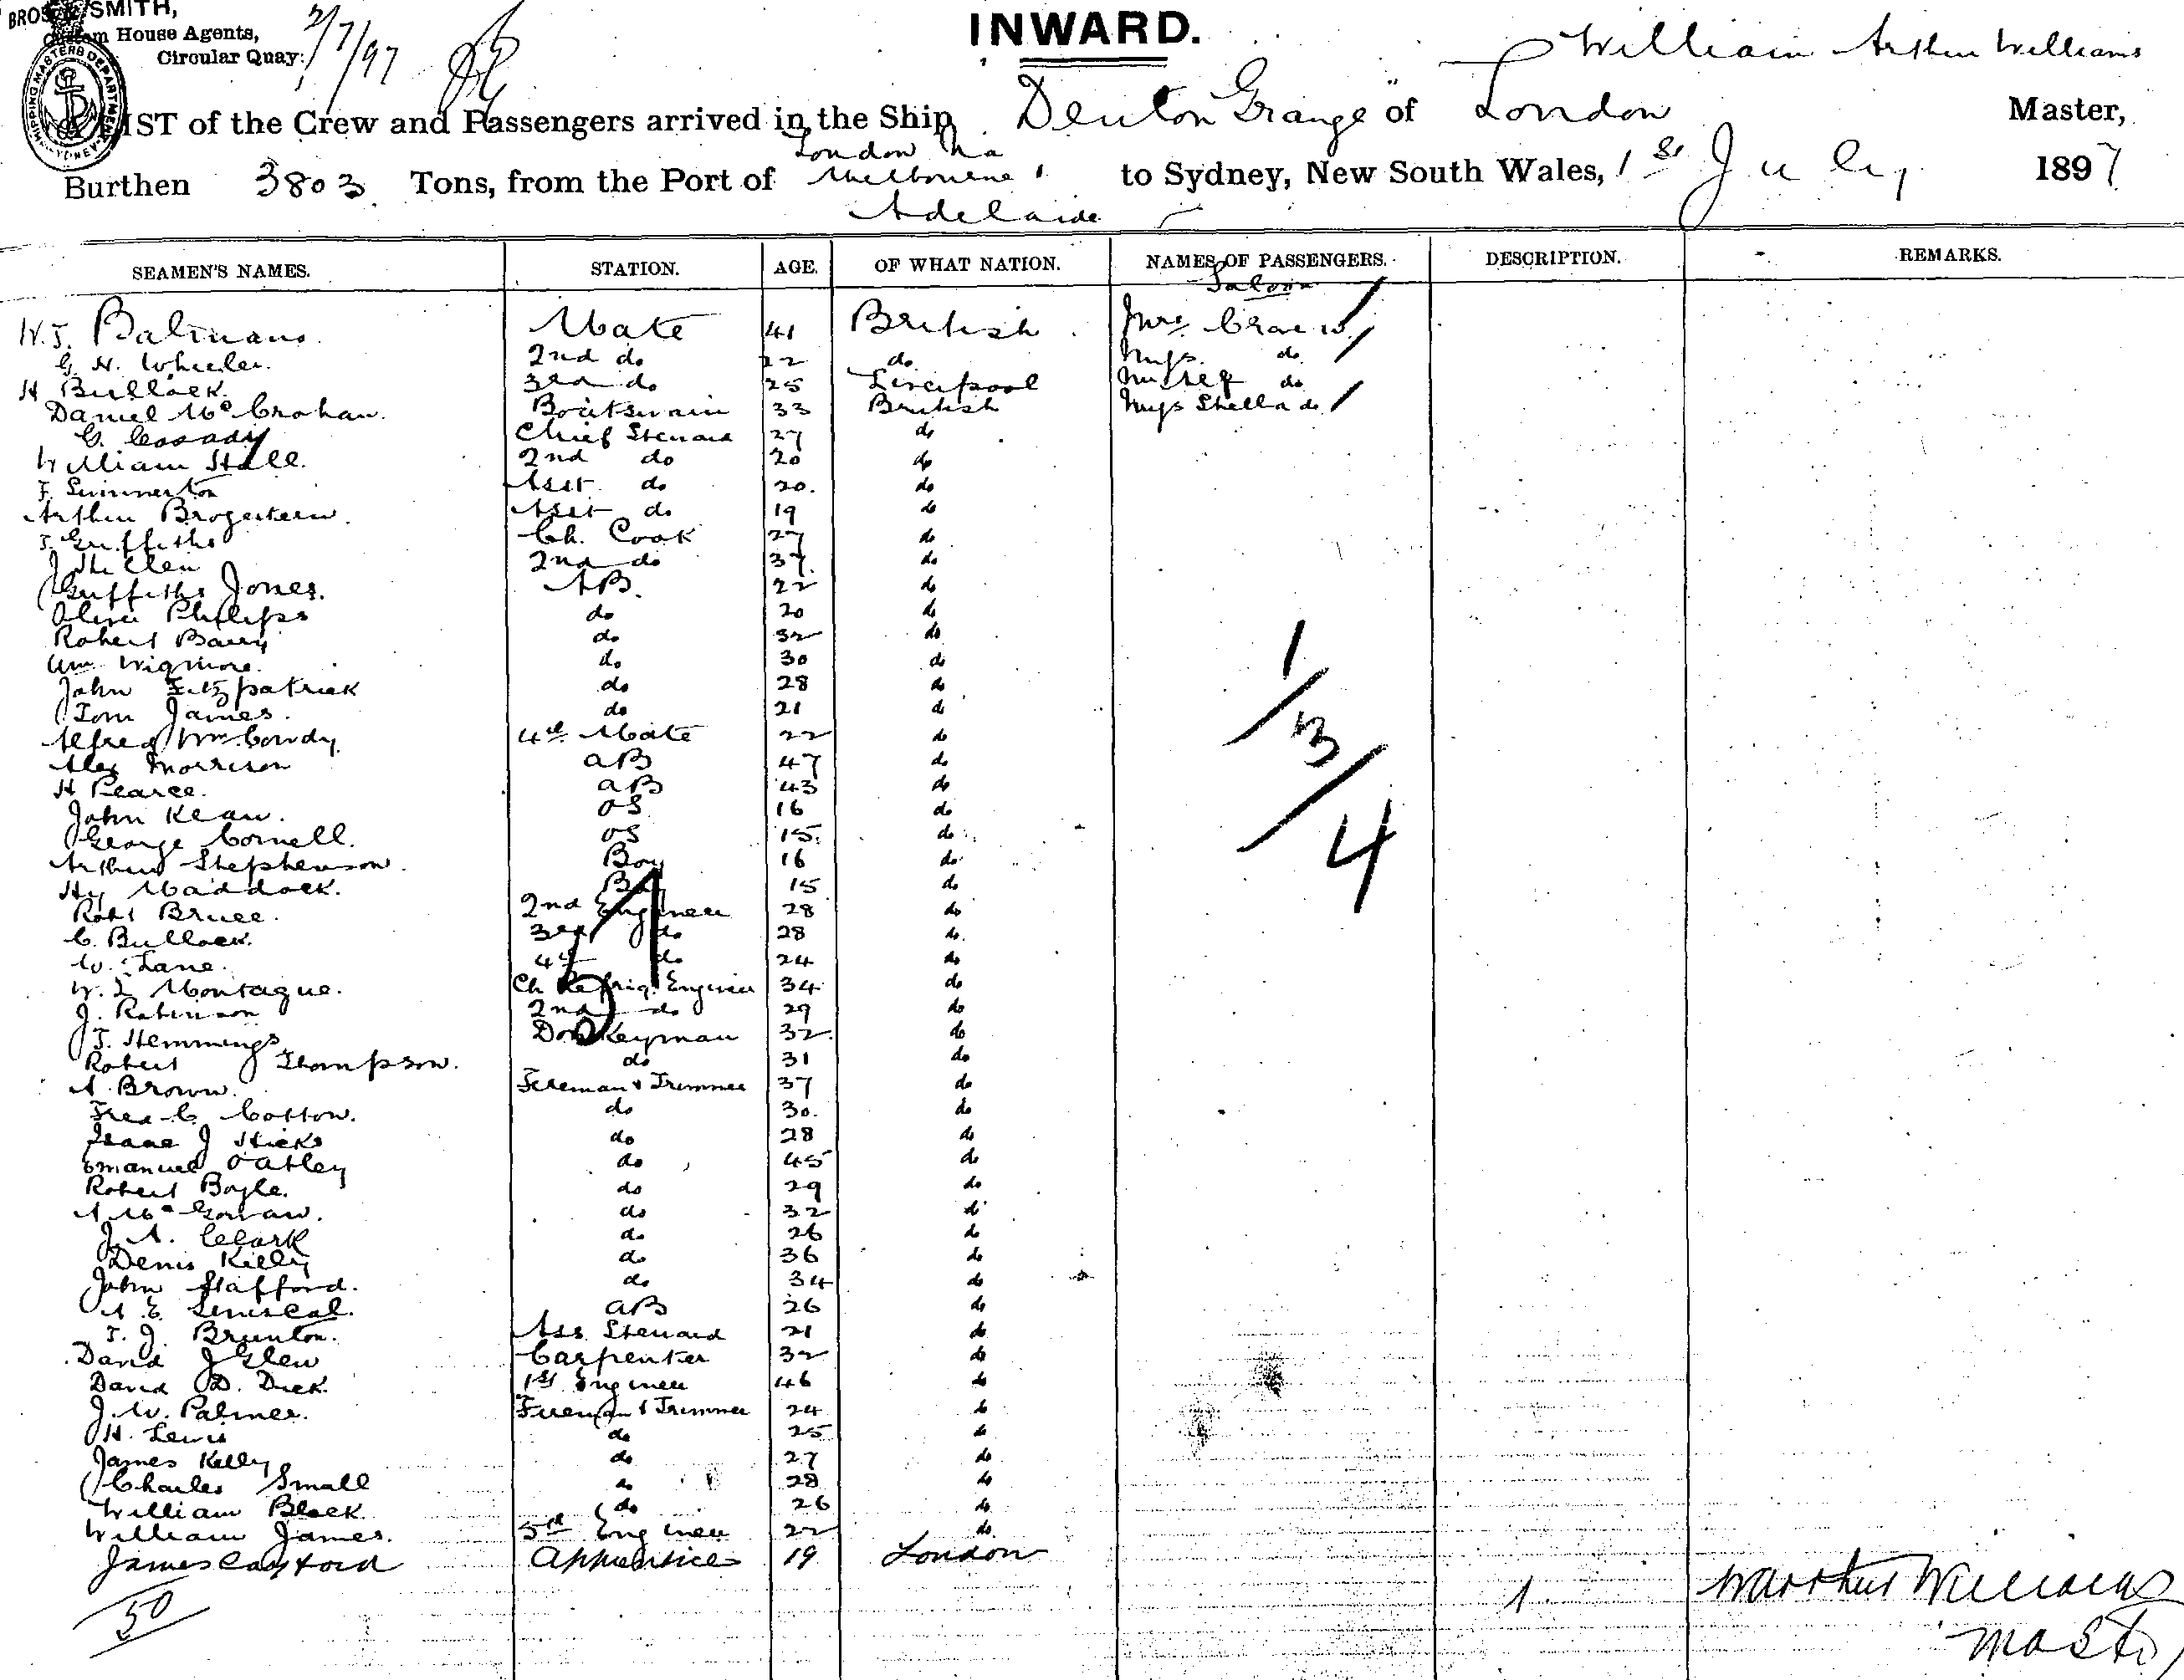 BROS. SMITH,
House Agents,
Circular Quay.
2/7/97
INWARD.
William Arthur Williams
SHIPPING MASTERS DEPARTMENT SYDNEY
LIST of the Crew and Passengers arrived in the Ship Denton Grange of London Master,
London via
Burthen 3803 Tons, from the Port of Melbourne to Sydney, New South Wales, 1st July 1897
Adelaide
SEAMEN'S NAMES. STATION. AGE. OF WHAT NATION. NAMES OF PASSENGERS. DESCRIPTION. REMARKS.
Saloon
W. J. Mate 41 British Mrs
G. H. Wheeler 2nd do 22 do do
H Bullock 3rd do 25 Liverpool do
Daniel McCrohan Boatswain 33 British do
C. Cosady Chief Steward 27 do
William Hall 2nd do 20 do
F. Swinnerton Asst do 20 do
Arthur Asst do 19 do
T. Griffiths Ch. Cook 27 do
J 2nd do 37 do
Griffiths Jones AB 22 do
Oliver Phillips do 20 do
Robert Barry do 32 do
Wm Wigmore do 30 do
John Fitzpatrick do 28 do
Tom James do 21 do
Alfred Wm Cordy 4th Mate 22 do
Alex Morrison AB 47 do
H Pearce AB 43 do
John Kean OS 16 do
George Cornell OS 15 do
Arthur Stephenson Boy 16 do
Hy Maddock Boy 15 do
Robt Bruce 2nd Engineer 28 do
C. Bullock 3rd do 28 do
W. Lane 4th do 24 do
W. L Montague Ch Refrig. Engineer 34 do
J. Robinson 2nd do 29 do
T. Hemmings Donkeyman 32 do
Robert J Thompson do 31 do
A Brown Fireman & Trimmer 37 do
Fred C. Cotton do 30 do
Isaac J Hicks do 28 do
Emanuel Oatley do 45 do
Robert Boyle do 29 do
A McGowan do 32 do
J. A. Clark do 26 do
Denis Kelly do 36 do
John Stafford do 34 do
A. E. Seniscal AB 26 do
T. J. Brunton Ass Steward 21 do
David J Glen Carpenter 32 do
David D. Dick 1st Engineer 46 do
J. W. Palmer Fireman & Trimmer 24 do
H. Lewis do 25 do
James Kelly do 27 do
Charles Small do 28 do
William Black do 26 do
William James 5th Engineer 22 do
James Apprentice 19 London
1/3/4
50
1
W Arthur Williams
Master